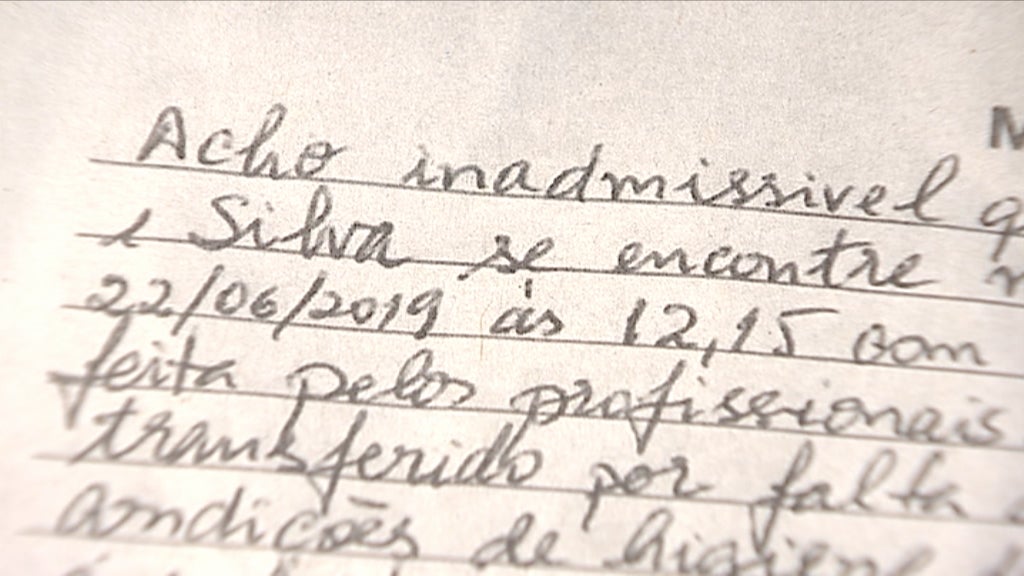 M
Acho inadmissivel q
e Silva se encontre
22/06/2019 às 12,15 com
feita pelos profissionais
transferido por falta
condições de higiene